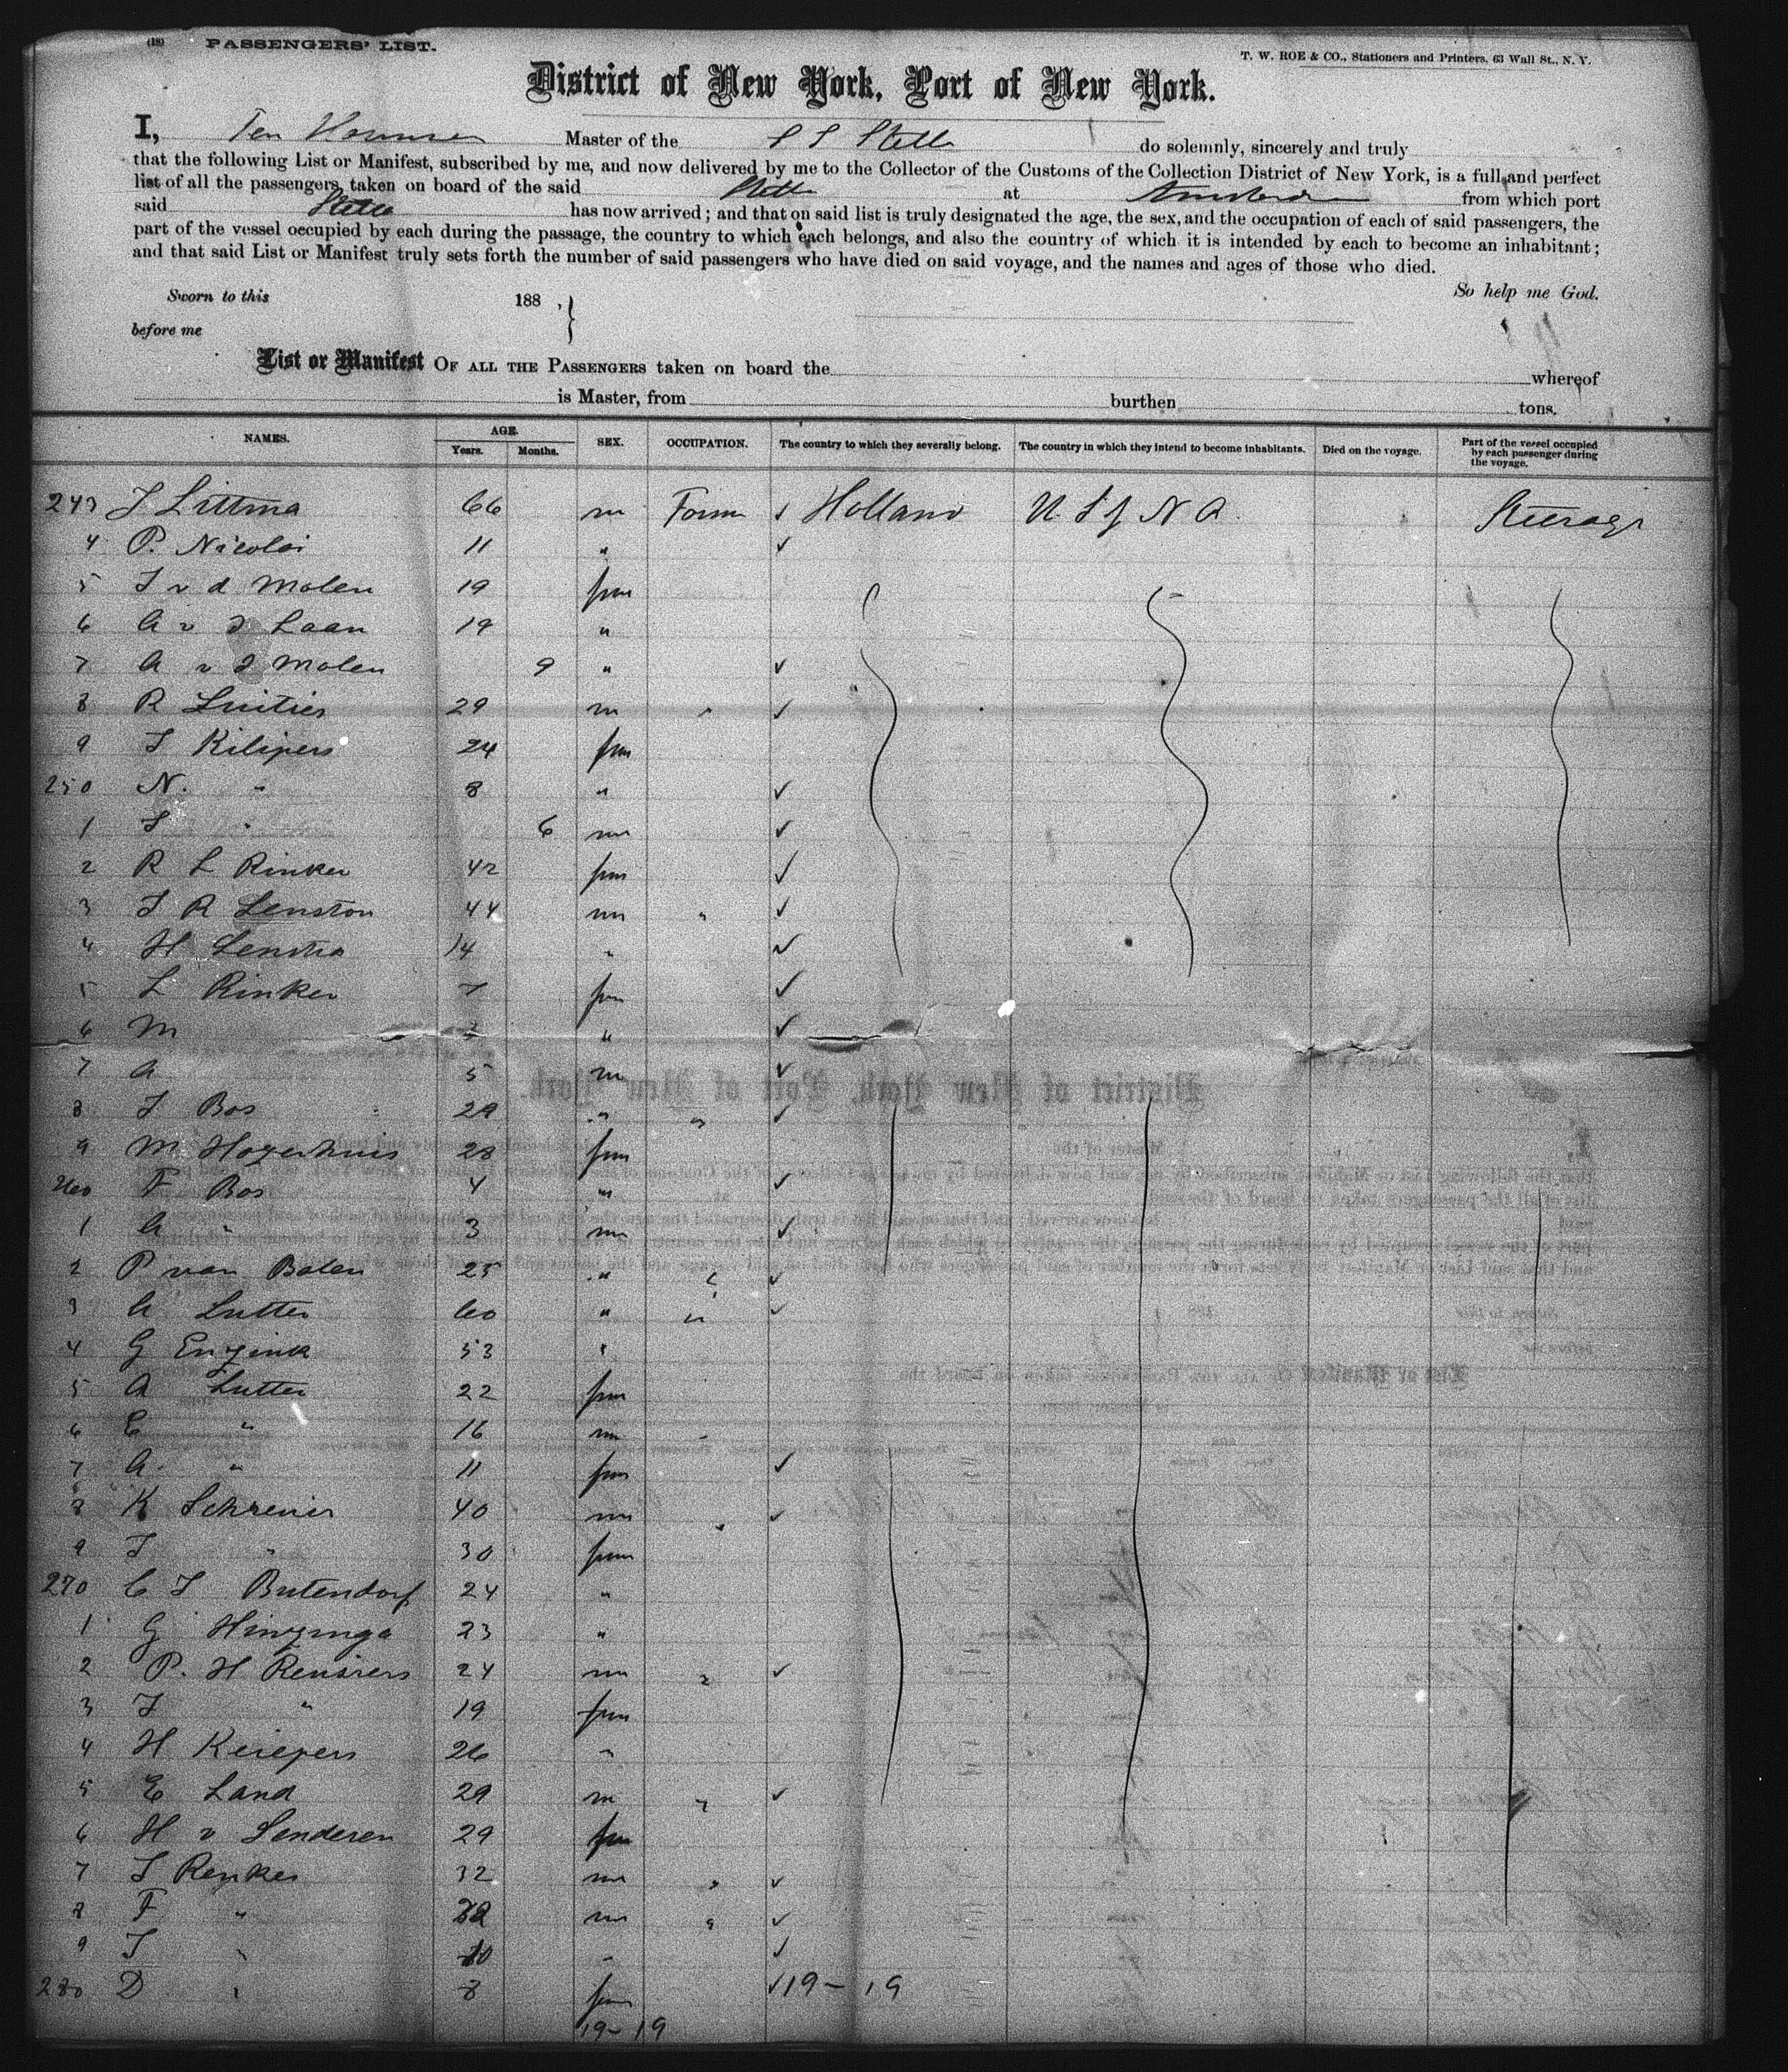 (18) PASSENGERS' LIST.
T. W. ROE & CO., Stationers and Printers, 63 Wall St., N. Y.
District of New York, Port of New York.
I, Master of the S S Stella do solemnly, sincerely and truly
that the following List or Manifest, subscribed by me, and now delivered by me to the Collector of the Customs of the Collection District of New York, is a full and perfect
list of all the passengers taken on board of the said Stella at Amsterdam from which port
said Stella has now arrived; and that on said list is truly designated the age, the sex, and the occupation of each of said passengers, the
part of the vessel occupied by each during the passage, the country to which each belongs, and also the country of which it is intended by each to become an inhabitant;
and that said List or Manifest truly sets forth the number of said passengers who have died on said voyage, and the names and ages of those who died.
So help me God.
Sworn to this 188 ,
before me
List or Manifest OF ALL THE PASSENGERS taken on board the whereof
is Master, from burthen tons.
NAMES. AGE. Years. Months. SEX. OCCUPATION. The country to which they severally belong. The country in which they intend to become inhabitants. Died on the voyage. Part of the vessel occupied by each passenger during the voyage.
243 J Littma 66 m Farm ✓ Holland U S of N A. Steerage
4 P. Nicolai 11 " ✓
5 J v d Molen 19 fm
6 A v d Laan 19 "
7 A v d Molen 9 " ✓
8 R Luities 29 m " ✓
9 J Kilipers 24 fm
250 N. " 8 " ✓
1 J " 6 m ✓
2 R L Rinker 42 fm ✓
3 J R Lenston 44 m " ✓
4 H Lenstra 14 " ✓
5 L Rinker 7 fm ✓
6 M " ✓
7 A 5 m ✓
8 J Bos 29 " " ✓
9 M Hogerhuis 28 fm
260 F Bos 4 " ✓
1 A " 3 m ✓
2 P van Balen 25 " " ✓
3 A Lutter 60 " " ✓
4 G Enzink 53 "
5 A Lutter 22 fm
6 E " 16 m "
7 A. " 11 fm ✓
8 K Schreuir 40 m " ✓
9 J " 30 fm
270 C J Butendorf 24 "
1 G Hinzinga 23 "
2 P. H Rensiers 24 m " ✓
3 J " 19 fm
4 H Keiepers 26 "
5 E Land 29 m " ✓
6 H v Lenderen 29 fm
7 J Renkes 32 m " ✓
8 F " m " ✓
9 J " 10 " ✓
280 D " 8 fm ✓ 19 - 19
19 - 19